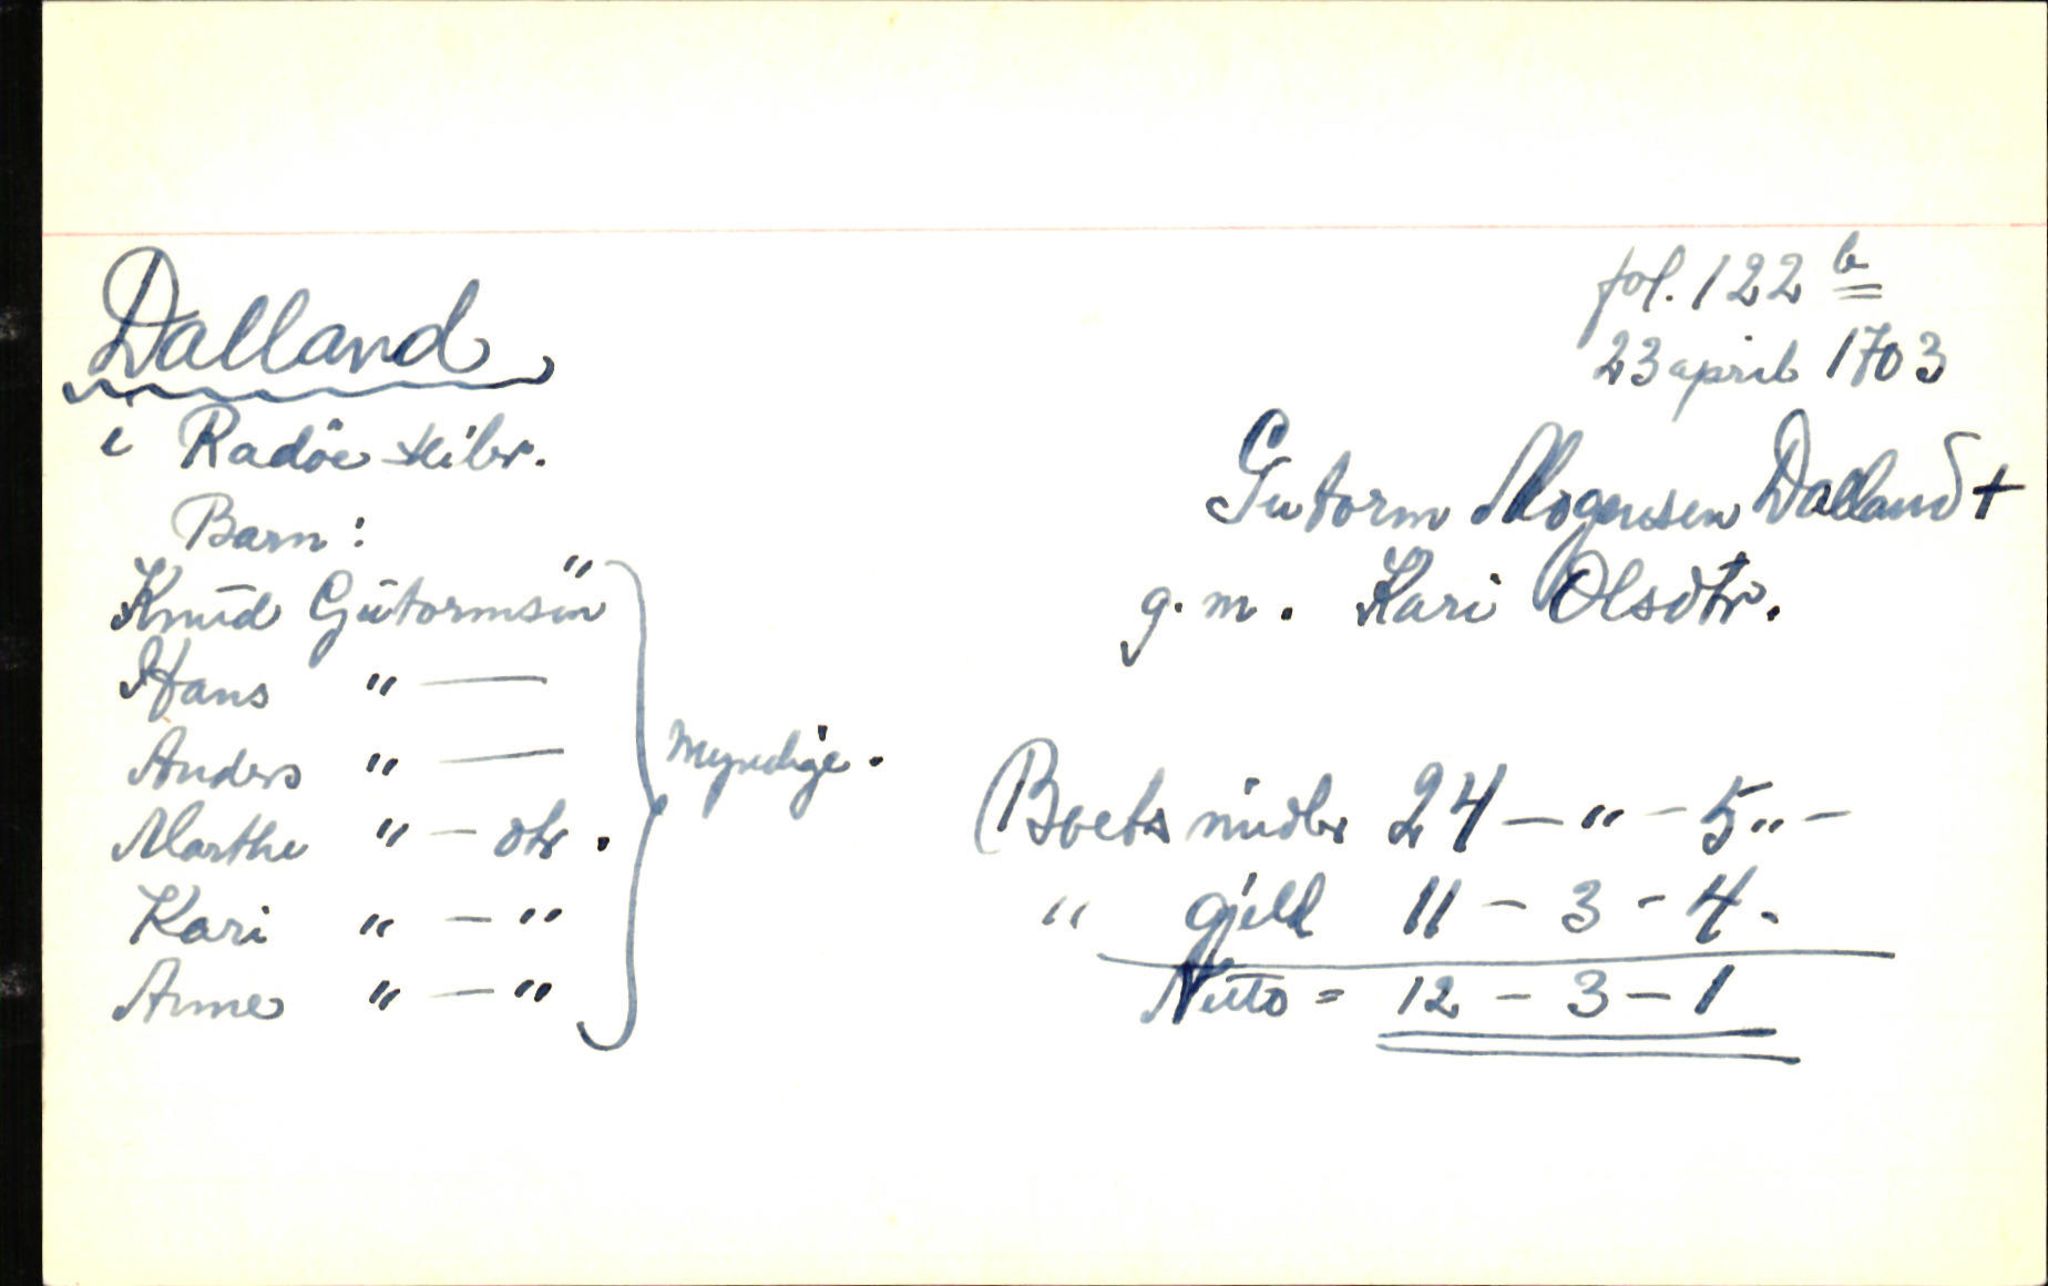 fol. 122 b
23 april 1703
Dalland
i Radöe skibr.
Gutorm Mogensen Dalland +
g. m. Kari Olsdtr.
Barn:
Knud Gutormsen "
Hans " —
Anders " —
Marthe " — dtr.
Kari " — "
Anne " — "
Myndige.
Boets midler 24 — " — 5 " —
" gjeld 11 — 3 - 4.
Netto = 12 — 3 — 1